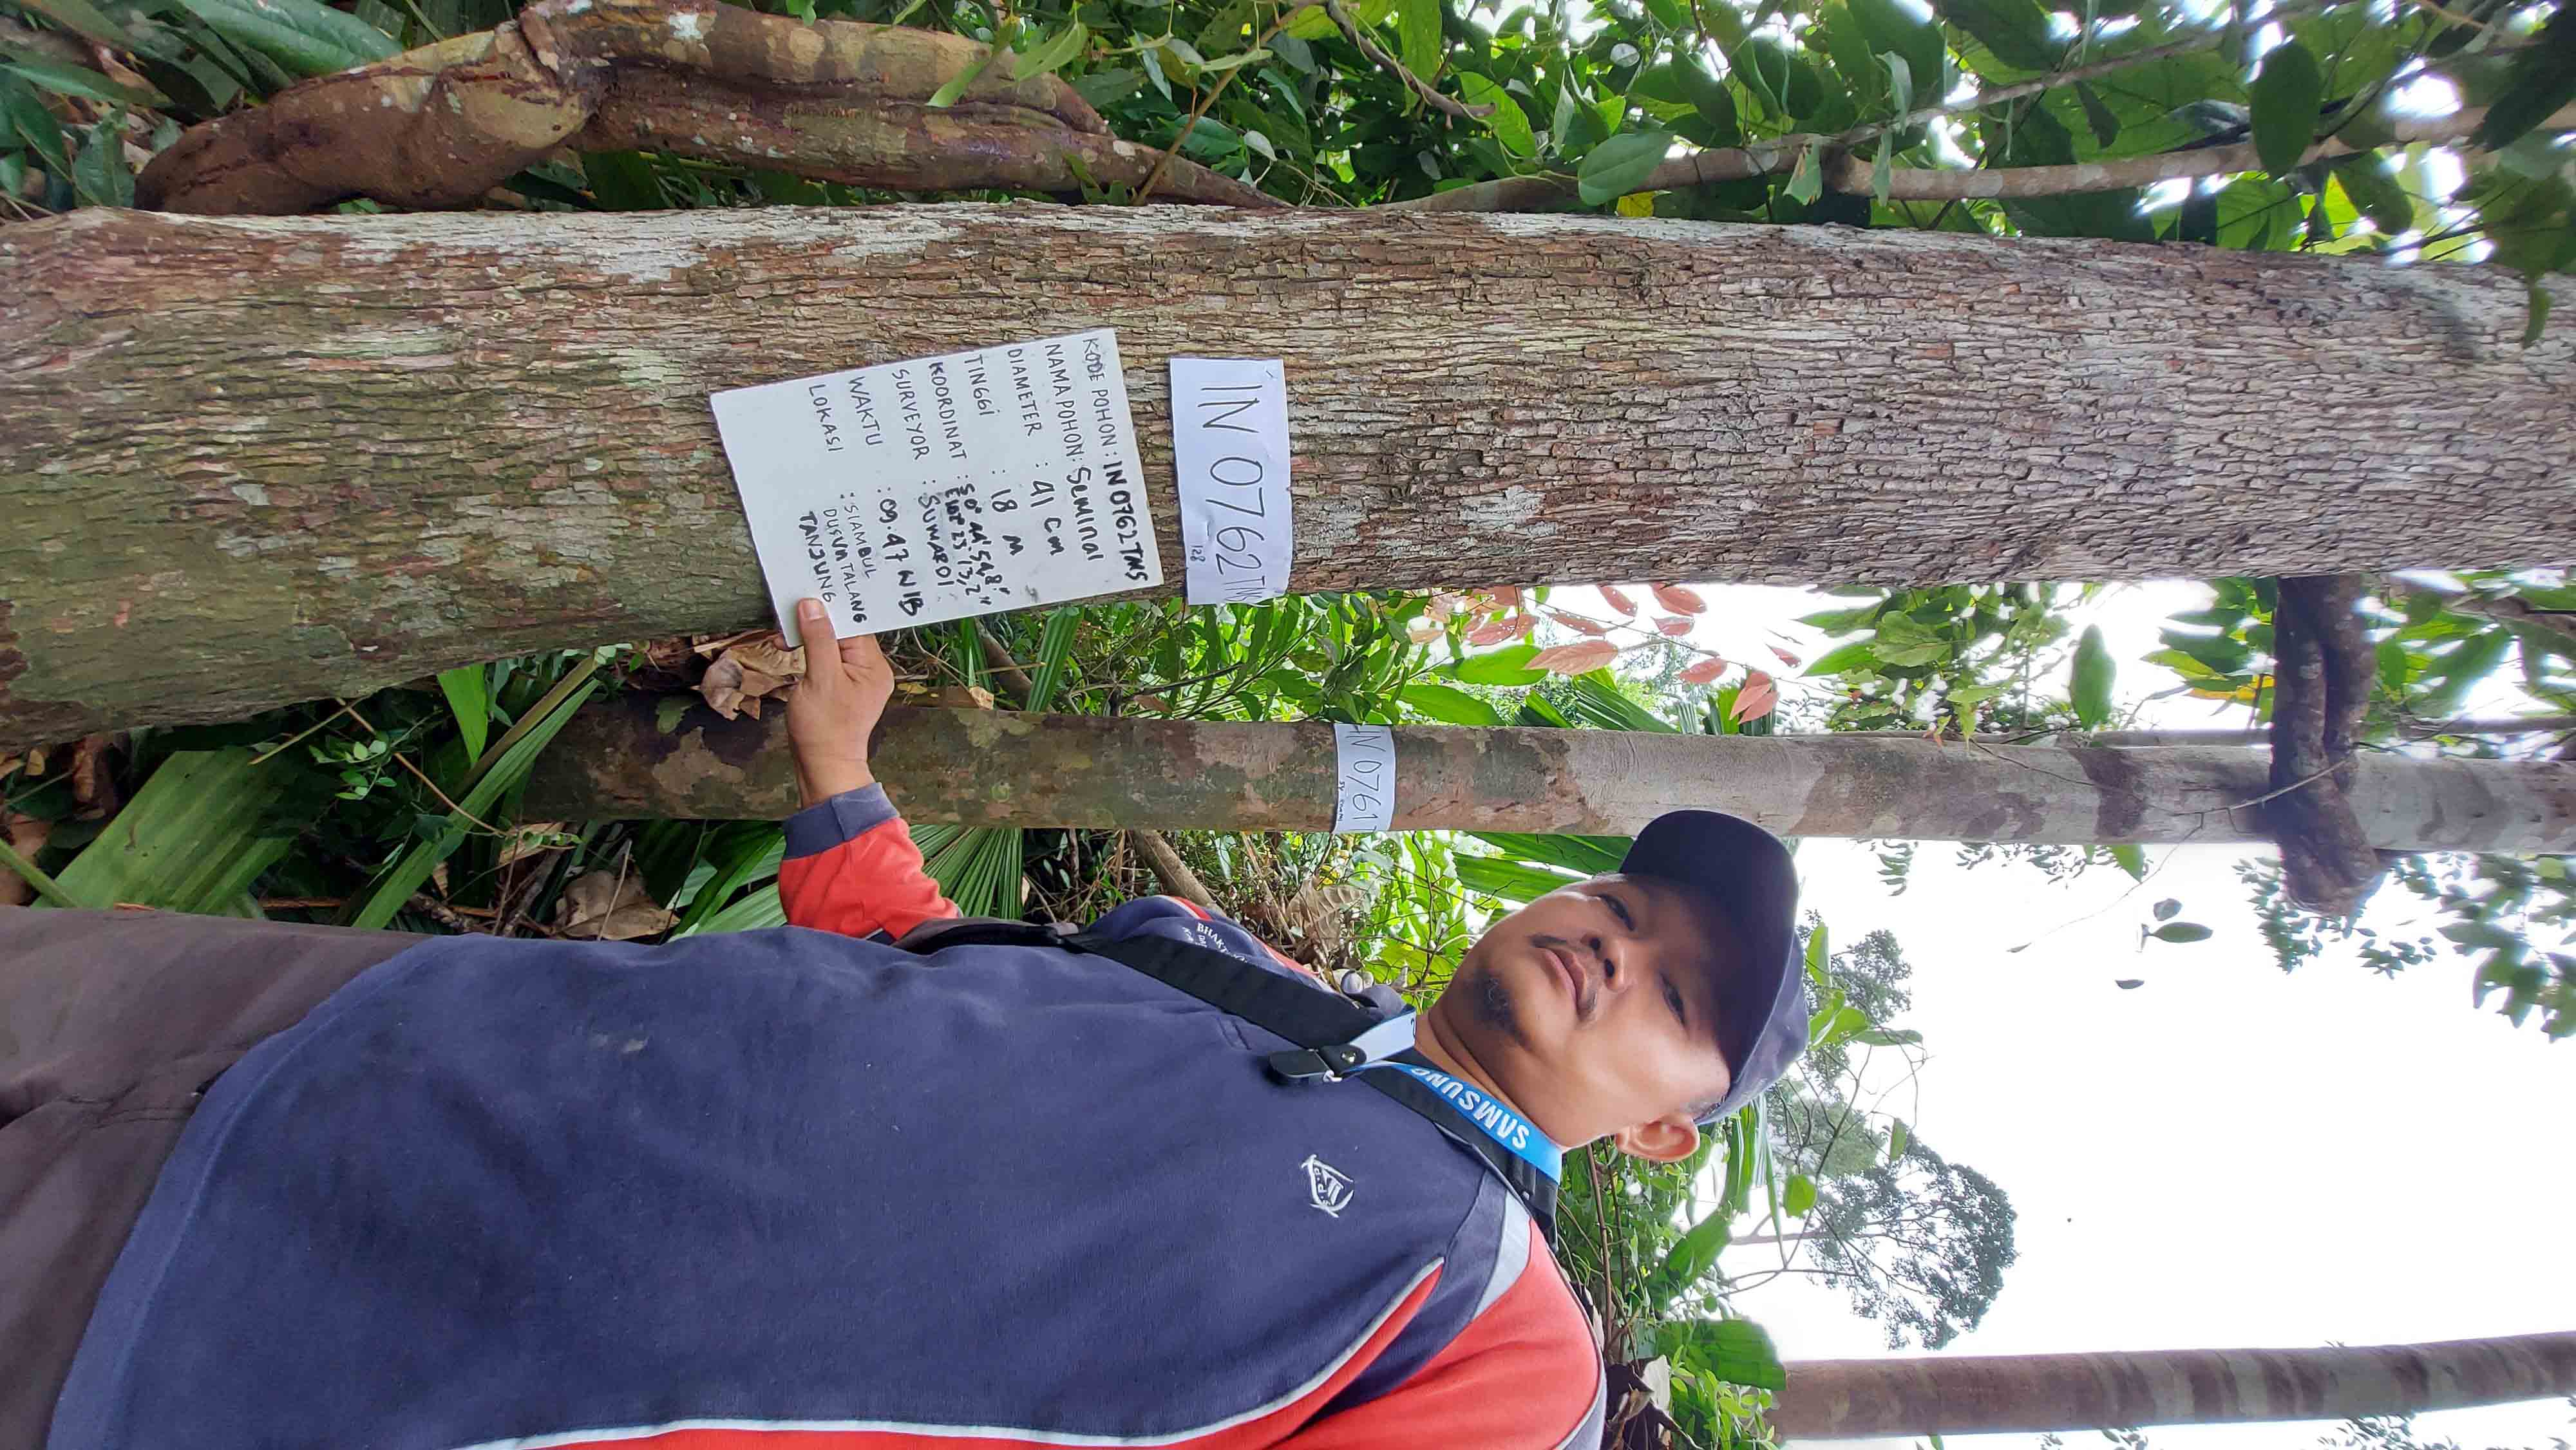 KODE POHON : IN0762TMS
NAMA POHON : Seminai
DIAMETER : 41 cm
TINGGI : 18 M
KOORDINAT :
SURVEYOR : SUWARDI
WAKTU : 09.47 WIB
LOKASI : SIAMBUL
DUSUN TALANG
TANJUNG
IN 0762
128
IN 0761
SAMSUNG